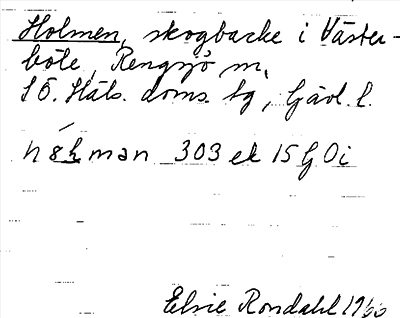 Holmen, skogbacke i Väster-
böle, Rengsjö sn,
SÖ. Häls. doms. tg, Gävl. l.
hǝ́l̥man 303 ek 15 G Ö i
Elsie Rondahl 1960